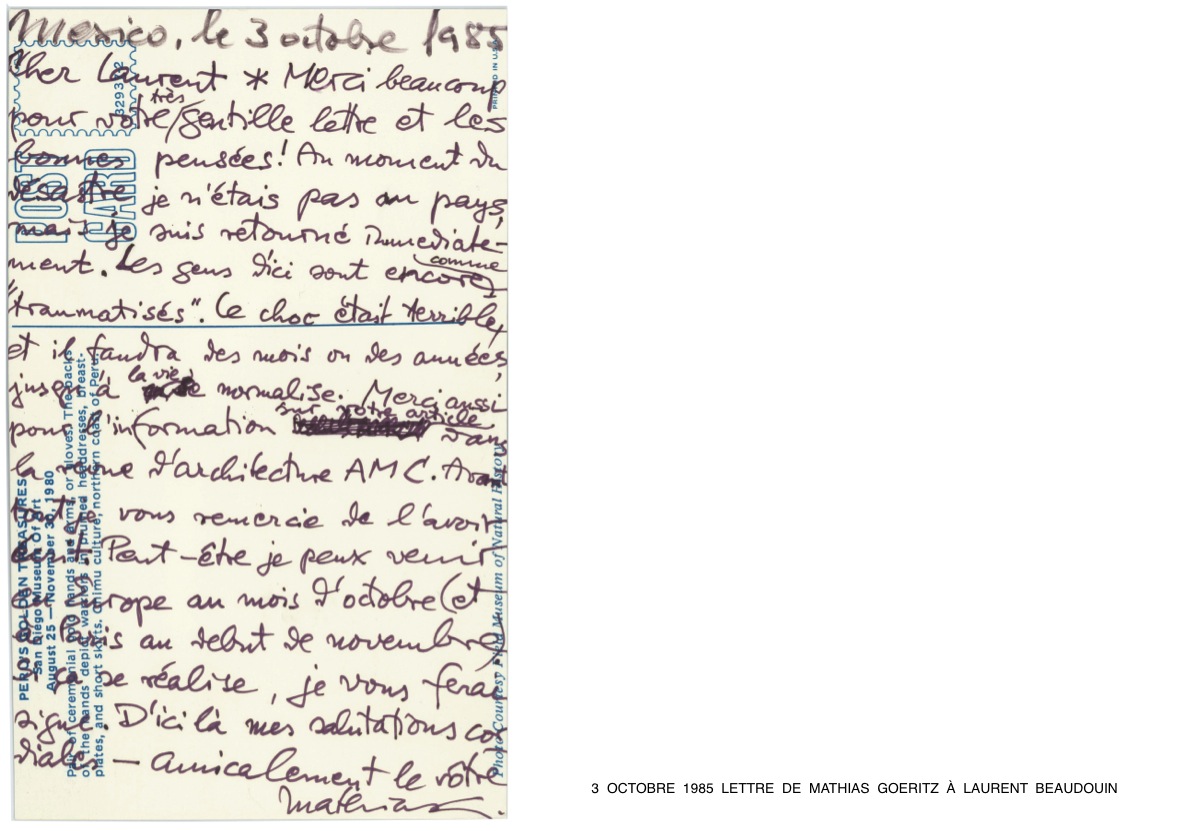 Mexico, le 3 octobre 1985
Cher Laurent * Merci beaucoup
pour votre très gentille lettre et les
bonnes pensées! Au moment du
désastre je n'étais pas au pays,
mais je suis retourné immediate-
ment. Les gens d'ici sont encore comme
"traumatisés". Le choc était terrible,
et il faudra des mois ou des années,
jusqu'à la vie se normalise. Merci aussi
pour l'information sur votre article dans
la revue d'architecture AMC. Avant
tout je vous remercie de l'avoir
écrit! Peut-être je peux venir
en Europe au mois d'octobre (et
à Paris au debut de novembre)
si ça se réalise, je vous ferai
signe. D'ici là mes salutations cor-
diales — amicalement le vôtre
Mathias
POST CARD
329372
PRINTED IN U.S.
PERU'S GOLDEN TREASURES
San Diego Museum Of Art
August 25 — November 30, 1980
Pair of ceremonial gold hands and arms, or gloves. The backs
of the hands depict warriors in plumed headdresses, breast-
plates, and short skirts. Chimu culture, northern coast of Peru.
Photo Courtesy Field Museum of Natural History
3 OCTOBRE 1985 LETTRE DE MATHIAS GOERITZ À LAURENT BEAUDOUIN